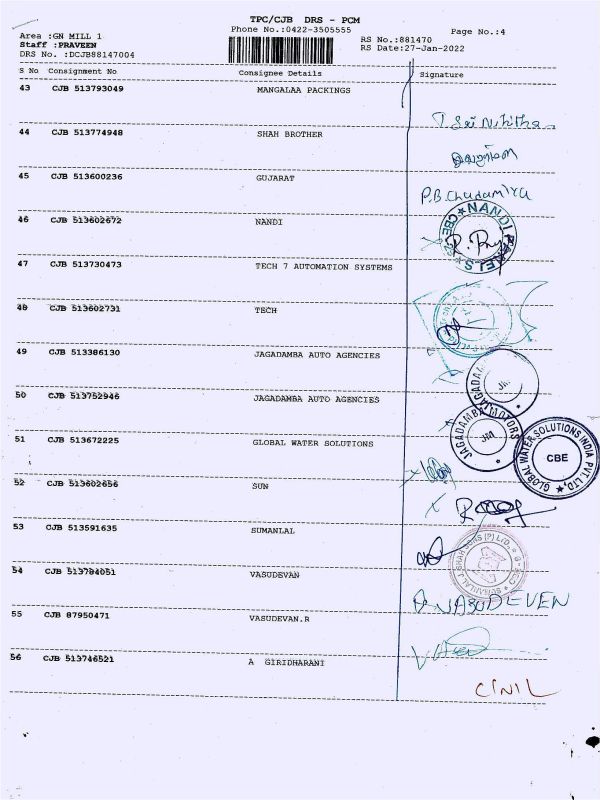 TPC/CJB DRS - PCM
Phone No.:0422-3505555
Page No.:4
Area :GN MILL 1
RS No.:881470
Staff :PRAVEEN
RS Date:27-Jan-2022
DRS No. :DCJB88147004
S No Consignment No Consignee Details Signature
43 CJB 513793049 MANGALAA PACKINGS
T Sri Nihitha
44 CJB 513774948 SHAH BROTHER
45 CJB 513600236 GUJARAT
P.B.
46 CJB 513602672 NANDI
NANDI CBE
47 CJB 513730473 TECH 7 AUTOMATION SYSTEMS
48 CJB 513602731 TECH
49 CJB 513386130 JAGADAMBA AUTO AGENCIES
JAGADAMBA
50 CJB 513752946 JAGADAMBA AUTO AGENCIES
JAGADAMBA MOTORS JM
51 CJB 513672225 GLOBAL WATER SOLUTIONS
GLOBAL WATER SOLUTIONS INDIA PVT. LTD. CBE
52 CJB 513602656 SUN
53 CJB 513591635 SUMANLAL
54 CJB 513784051 VASUDEVAN
A VASUDEVEN
55 CJB 87950471 VASUDEVAN.R
56 CJB 513746521 A GIRIDHARANI